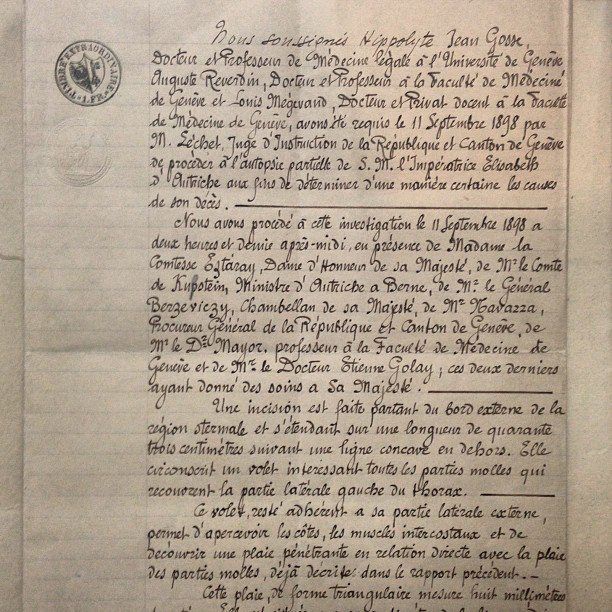 TIMBRE EXTRAORDINAIRE
1. FR.
Nous soussignés Hippolyte Jean Gosse,
Docteur et Professeur de Médecine légale à l'Université de Genève
Auguste Reverdin, Docteur et Professeur à la Faculté de Médecine
de Genève et Louis Mégevand, Docteur et Privat docent à la Faculté
de Médecine de Genève, avons été requis le 11 Septembre 1898 par
M. Léchet, Juge d'Instruction de la République et Canton de Genève
de procéder à l'autopsie partielle de S. M. l'Impératrice Elisabeth
d'Autriche aux fins de déterminer d'une manière certaine les causes
de son décès.
Nous avons procédé à cette investigation le 11 Septembre 1898 a
deux heures et demie après-midi, en présence de Madame la
Comtesse Sztaray, Dame d'Honneur de sa Majesté, de Mr le Comte
de Kupstein, Ministre d'Autriche a Berne, de Mr le Général
Berzeviczy, Chambellan de sa Majesté, de Mr Navazza,
Procureur Général de la République et Canton de Genève, de
Mr le Dr Mayor, professeur à la Faculté de Médecine de
Genève et de Mr le Docteur Etienne Golay; ces deux derniers
ayant donné des soins a Sa Majesté.
Une incision est faite partant du bord externe de la
région sternale et s'étendant sur une longueur de quarante
trois centimètres suivant une ligne concave en dehors. Elle
circonscrit un volet interessant toutes les parties molles qui
recouvrent la partie latérale gauche du thorax.
Ce volet, resté adhérent a sa partie latérale externe,
permet d'apercevoir les côtes, les muscles intercostaux et de
découvrir une plaie pénétrante en relation directe avec la plaie
des parties molles, déjà décrite dans le rapport précédent.
Cette plaie, de forme triangulaire mesure huit millimètres